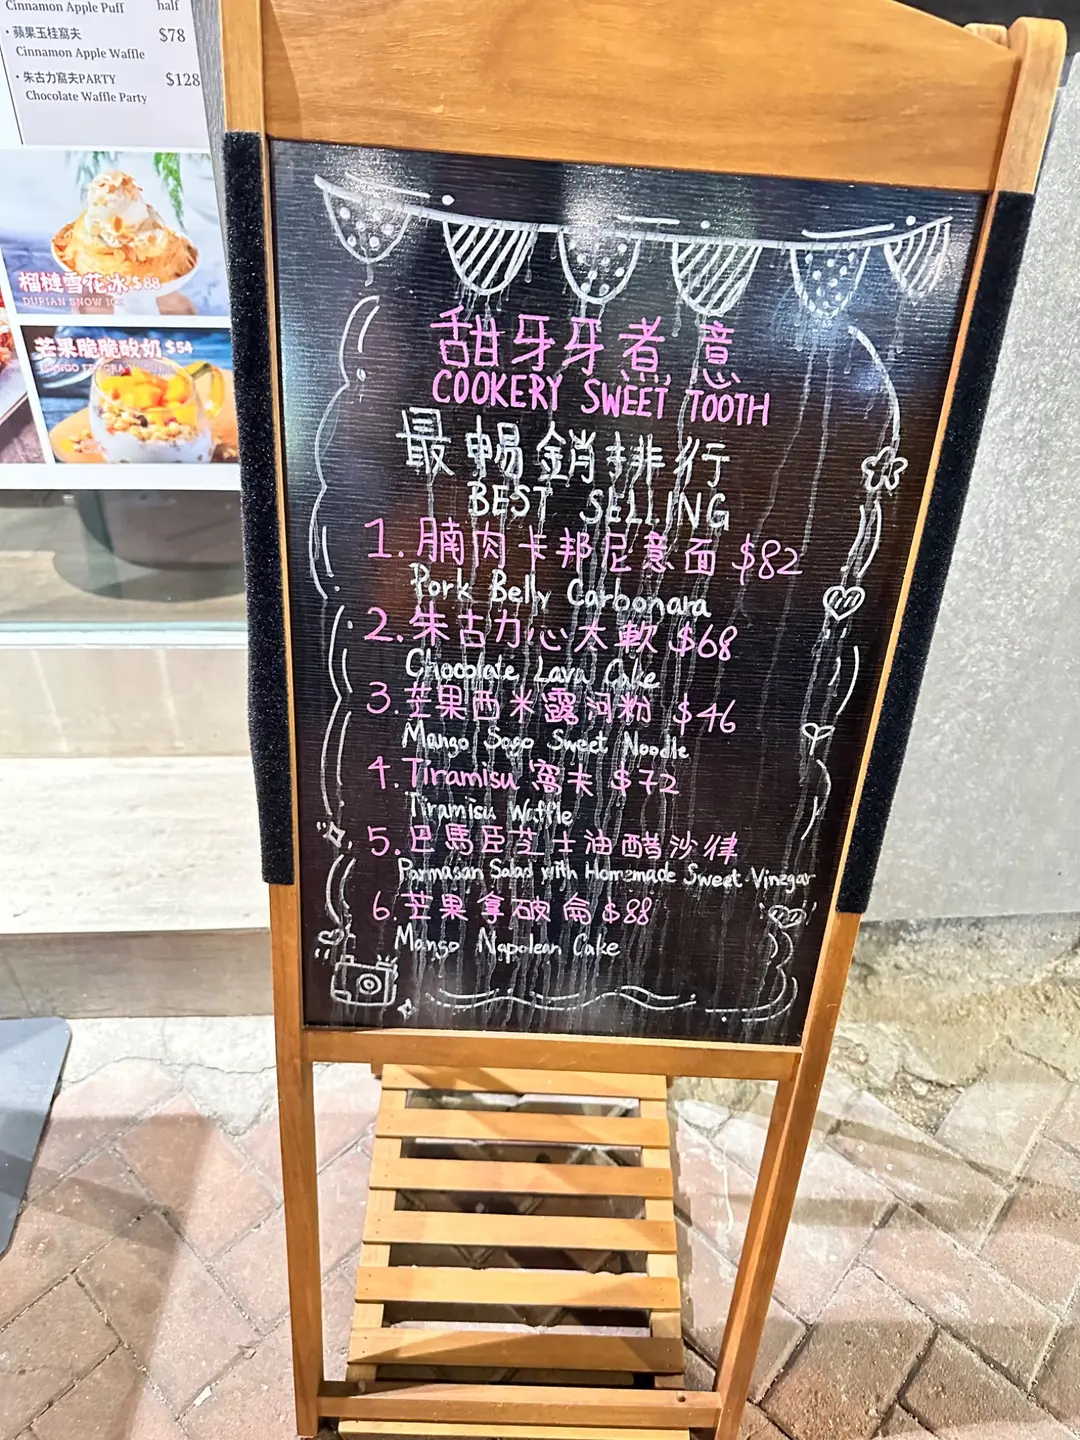 Cinnamon Apple Puff half
· 蘋果玉桂窩夫 $78
Cinnamon Apple Waffle
· 朱古力窩夫PARTY $128
Chocolate Waffle Party
榴槤雪花冰 $88
DURIAN SNOW IC
芒果脆脆酸奶 $54
甜牙牙煮意
COOKERY SWEET TOOTH
最暢銷排行
BEST SELLING
1. 腩肉卡邦尼意面 $82
Pork Belly Carbonara
2. 朱古力心太軟 $68
Chocolate Lava Cake
3. 芒果西米露河粉 $46
Mango Sago Sweet Noodle
4. Tiramisu 窩夫 $72
Tiramisu Waffle
5. 巴馬臣芝士油醋沙律
Parmasan Salad with Homemade Sweet Vinegar
6. 芒果拿破侖 $88
Mango Napolean Cake